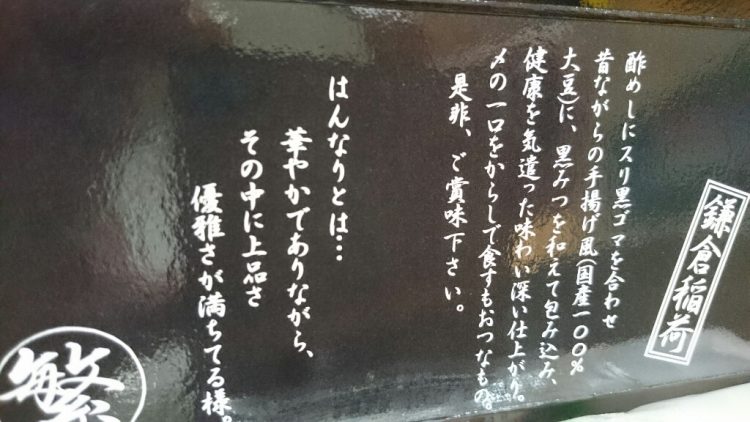 鎌倉稲荷
酢めしにスリ黒ゴマを合わせ
昔ながらの手揚げ風(国産一〇〇%
大豆)に、黒みつを和えて包み込み、
健康を気遣った味わい深い仕上がり。
〆の一口をからしで食すもおつなもの。
是非、ご賞味下さい。
はんなりとは…
華やかでありながら、
その中に上品さ
優雅さが満ちてる様。
繁